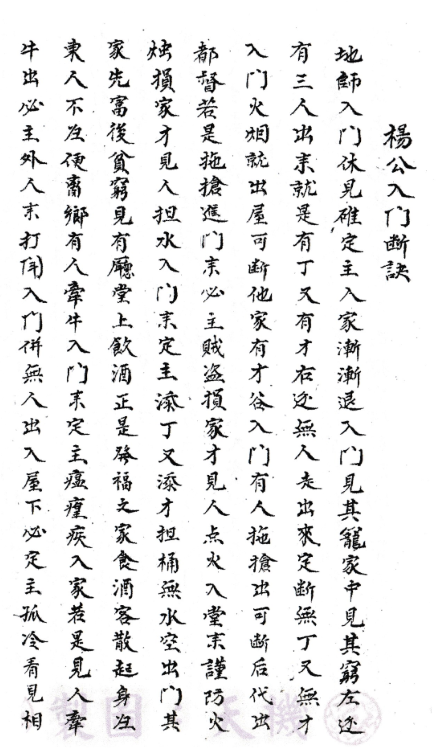 楊公入门断訣
地師入门休見碓定主人家漸漸退入门見其籠家中見其窮左边
有三人出来就是有丁又有才右边無人走出來定断無丁又無才
入门火烟就出屋可断他家有才谷入门有人拖搶出可断后代出
都督若是拖搶進门来必主賊盗損家才見人点火入堂来謹防火
烛損家才見人担水入门来定主添丁又添才担桶無水空出门其
家先富後貧窮見有廳堂上飲酒正是發福之家食酒客散起身
東人不在便賣鄉有人牽牛入门来定主瘟瘟疾入家若是見人牽
牛出必主外人来打入门併無人出入屋下必定主孤冷看見相